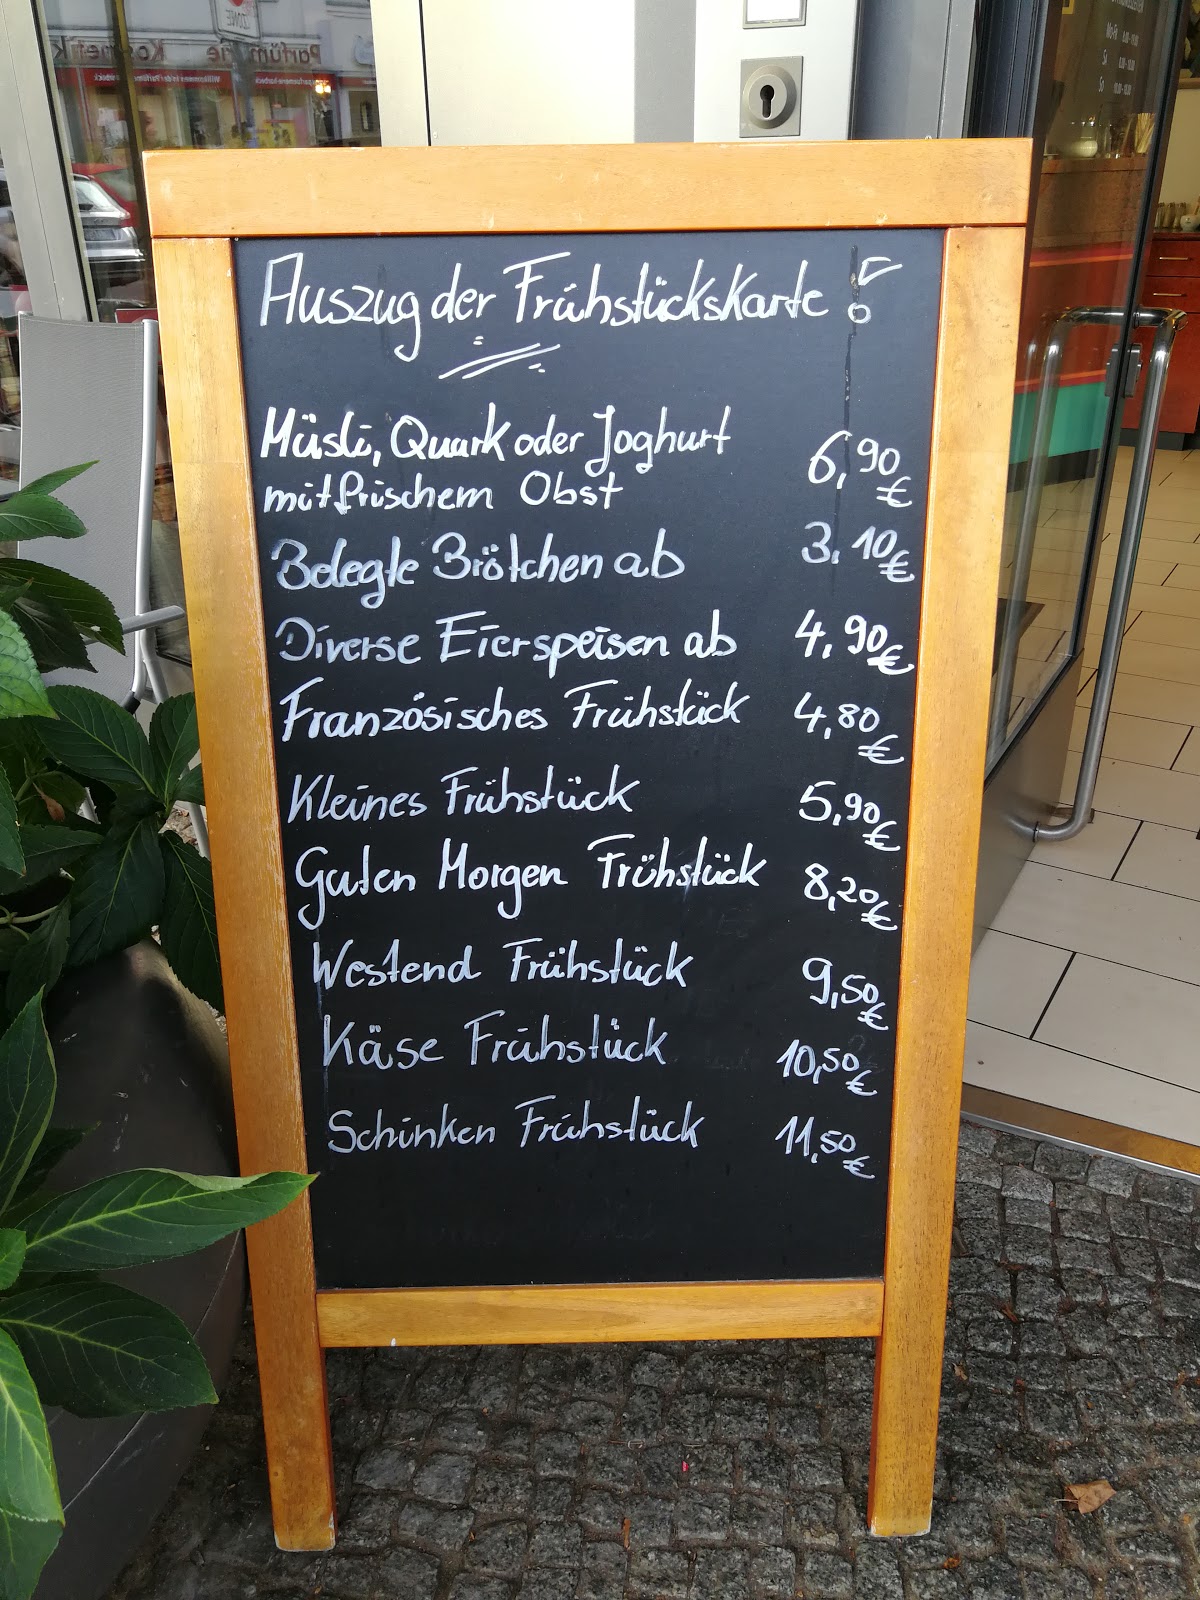 Auszug der Frühstückskarte!
Müsli, Quark oder Joghurt
mit frischem Obst 6,90 €
Belegte Brötchen ab 3,10 €
Diverse Eierspeisen ab 4,90 €
Französisches Frühstück 4,80 €
Kleines Frühstück 5,90 €
Guten Morgen Frühstück 8,20 €
Westend Frühstück 9,50 €
Käse Frühstück 10,50 €
Schinken Frühstück 11,50 €
Parfümerie Kosmetik
ZONE
Mo-Fr
Sa
So